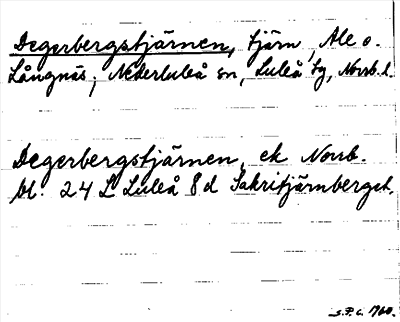 Degerbergstjärnen, tjärn, Ale o.
Långnäs, Nederluleå sn, Luleå tg, Norrb. l.
Degerbergstjärnen ek Norrb.
bl. 24 L Luleå 8d Sakritjärnberget.
S.P.C. 1960.